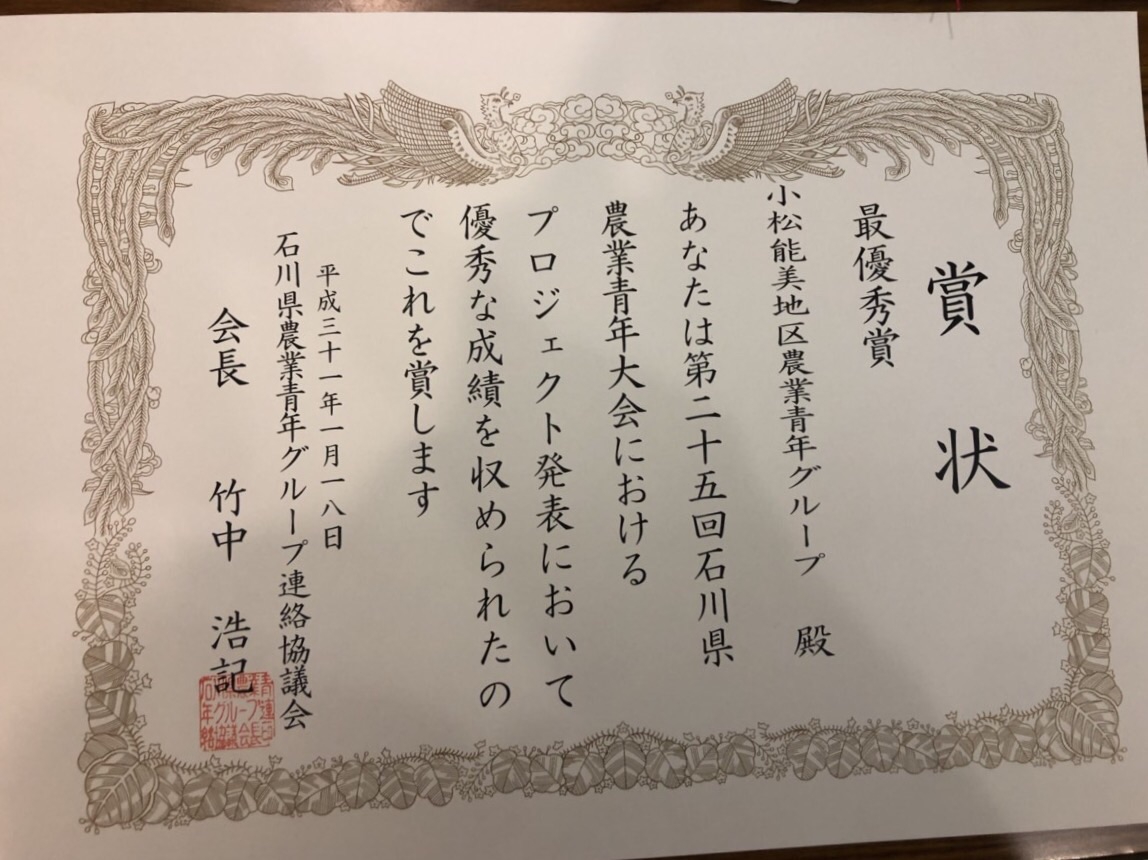 賞状
最優秀賞
小松能美地区農業青年グループ 殿
あなたは第二十五回石川県
農業青年大会における
プロジェクト発表において
優秀な成績を収められたの
でこれを賞します
平成三十一年一月一八日
石川県農業青年グループ連絡協議会
会長 竹中 浩記